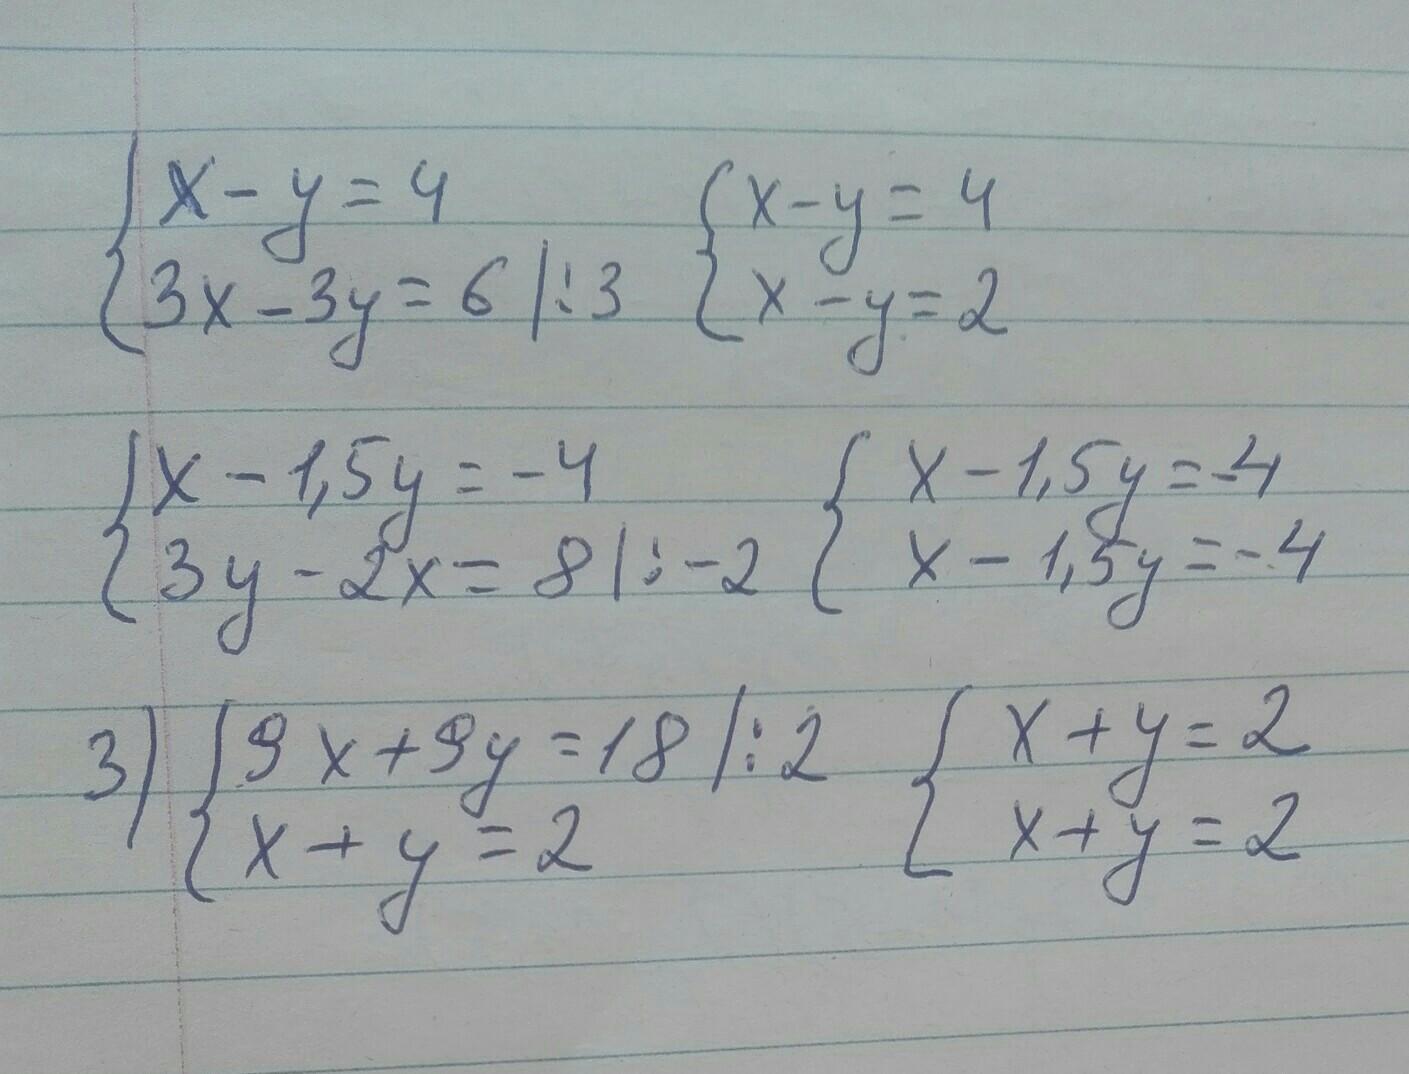 x - y = 4
3x - 3y = 6 |:3
x - y = 4
x - y = 2
x - 1,5y = -4
3y - 2x = 8 |: -2
x - 1,5y = -4
x - 1,5y = -4
3) 9x + 9y = 18 |:2
x + y = 2
x + y = 2
x + y = 2